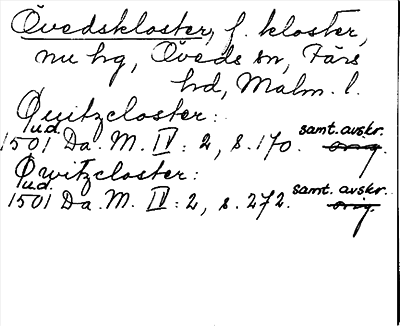 Övedskloster, f. kloster,
nu hg, Öveds sn, Färs
hd, Malm. l.
Øuitzcloster:
u.d.
1501 Da. M. IV: 2, s. 170. samt. avskr. orig.
Øwitzcloster:
u.d.
1501 Da. M. IV: 2, s. 272. samt. avskr. orig.